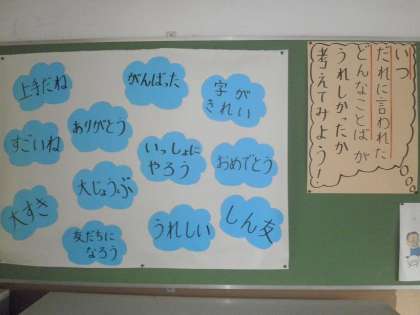 いつ
だれに言われた
どんなことばが
うれしかったか
考えてみよう!
上手だね
がんばった
字が
きれい
すごいね
ありがとう
いっしょに
やろう
おめでとう
大じょうぶ
大すき
友だちに
なろう
うれしい
しん友